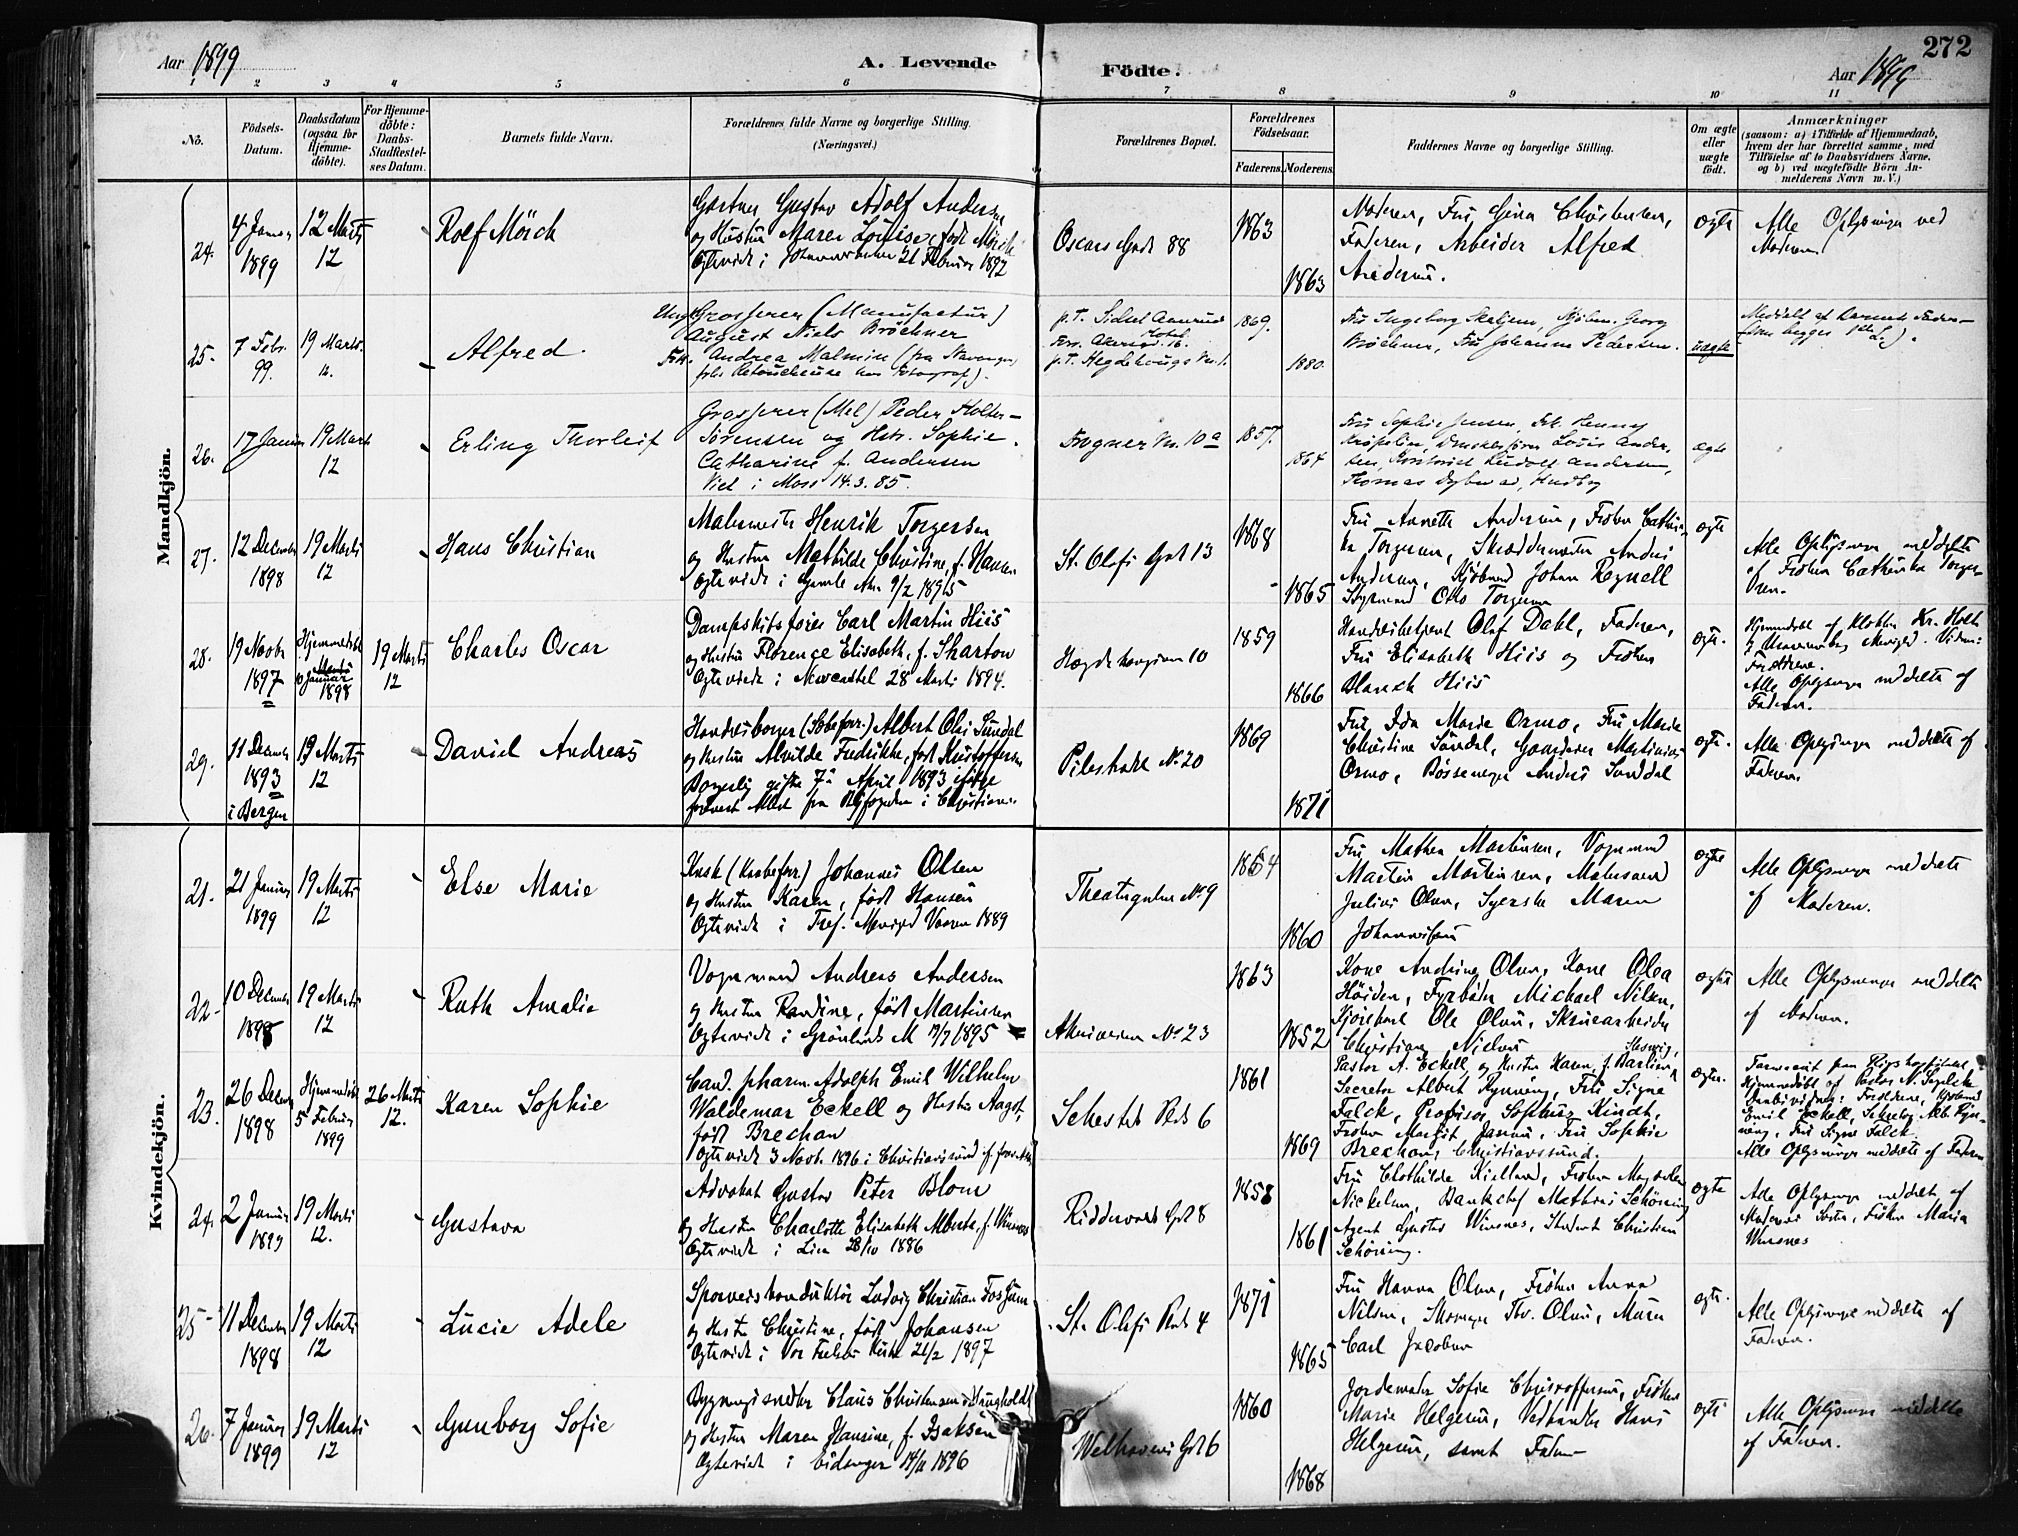 272
Aar 1899
A. Levende Födte.
Aar 1899
1 2 3 4 5 6 7 8 9 10 11
No.
Födsels-
Datum.
Daabsdatum
(ogsaa for
Hjemme-
döbte).
For Hjemme-
döbte:
Daabs-
Stadfestel-
ses Datum.
Barnets fulde Navn.
Forældrenes fulde Navne og borgerlige Stilling.
(Næringsvei.)
Forældrenes Bopæl.
Forældrenes
Födselsaar.
Faderens. Moderens.
Faddernes Navne og borgerlige Stilling.
Om ægte
eller
uægte
födt.
Anmærkninger
(saasom: a) i Tilfælde af Hjemmedaab,
hvem der har forrettet samme, med
Tilföielse af to Daabsvidners Navne,
og b) ved uægtefödte Börn An-
melderens Navn m. V.)
Mandkjön.
24.
4 Januar
1899
12 Marts
12
Rolf Mörch
Gartner Gustav Adolf Andersen
og Hustru Maren Louise, født Mörch
Ægteviede i Johannes 21 Februar 1892
Oscars Gade 88
1863
1863
Moderen, Fru Gina Christensen,
Faderen, Arbeider Alfred
Andersen.
ægte
Alle Oplysninger ved
Moderen
25.
7 Febr.
99.
19 Marts.
12.
Alfred.
Ungk. Grosserer (Manufactur)
August Niels Bröchner
Frk. Andrea Malmin (fra Stavanger,
Retoucheuse hos Fotograf).
p.T. Hotel.
p.T. Hegdehougs
1869.
1880.
Fru Ingeborg Georg
Bröchner, Fru Johanna Pedersen.
uægte
Meddelt af Barnets Fader
26.
17 Januar
19 Marts
12
Erling Thorleif
Grosserer (Mel) Peder Holter-
Sörensen og Hstr. Sophie
Catharine f. Andersen
Viet i Moss 14.3.85.
Frogner 10a
1857.
1864
Fru Sophie Jensen, Frk. Henny
Louis Ander-
sen, Rudolf Andersen,
Thomas
ægte
27.
12 December
1898
19 Marts
12
Hans Christian
Malermester Henrik Torgersen
og Hustru Mathilde Christine, f. Hansen
Ægteviede i Gamle Aker
St. Olafs Gade 13
1868
1865
Fru Annette Andersen, Frøken Cathin-
ka Torgersen, Skræddermester Anders
Andersen, Johan Regnell
Styrmand Otto Torgersen
ægte
Alle Oplysninger meddelte
af Frøken Cathinka Torger-
sen.
28.
19 Novbr
1897
Hjemmedöbt
Januar
1898
19 Marts
12
Charles Oscar
Dampskibsfører Carl Martin Hiis
og Hustru Florence Elisabeth, f. Sharton
Ægteviede i Newcastel 28 Marts 1894.
Hægdehaugsveien 10
1859
1866
Handelsbetjent Olaf Dahl, Faderen,
Fru Elisabeth Hiis og Frøken
Blanch Hiis
ægte.
Hjemmedøbt af Kr. Holth
Forældrene.
Alle Oplysninger meddelte af
Faderen.
29.
11 Decemb
1893
i Bergen
19 Marts
12
David Andreas
Handelsborger Albert Olai Sundal
og Hustru Alvilde Fredrikke, født Kristoffersen
Borgerlig gifte 7de April 1893 ifølge
fremvist Attest fra Byfogden i
Pilestrædet No 20
1869
1871
Fru Ida Marie Ormo, Fru Marie
Christine Sundal, Gaardeier Martinius
Ormo, Bøssemager Anders Sunddal
ægte.
Alle Oplysninger meddelte af
Faderen.
Kvindekjön.
21.
21 Januar
1899
19 Marts
12
Else Marie
Kusk Johannes Olsen
og Hustru Karen, født Hansen
Ægteviede i Menighed 1889
Theatergaden No 9
1854
1860
Fru Mathea Martinsen, Vognmand
Martin Martinsen, Malersvend
Julius Olsen, Syerske Maren
Johannesen
ægte
Alle Oplysninger meddelte
af Moderen.
22.
10 December
1898
19 Marts
12
Ruth Amalie
Vognmand Andreas Andersen
og Hustru Randine, født Martinsen
Ægteviede i Grønlands M 1895
Akersveien No 23
1863
1852
Kone Andrine Olsen, Kone Olea
Høiden, Fyrbøder Michael Nilsen,
Kjørekarl Ole Olsen, Skruearbeider
Christian Nielsen
ægte
Alle Oplysninger meddelte
af Moderen.
23.
26 Decemb
1898
Hjemmedöbt
5 Februar
1899
26 Marts
12.
Karen Sophie
Cand. pharm. Adolph Emil Wilhelm
Waldemar Eckell og Hustru Aagot,
født Brechan
Ægteviede 3 Novb. 1896 i Christianssund
Sehesteds Plads 6
1861
1869
Pastor A. Eckell, og Hustru Karen, f.
Secretær Albert Fru Signe
Falck, Provisor Sophus Kindt,
Frøken Margit Fru Sophie
Brechan, Christianssund.
ægte.
Hjemmedøbt af Pastor
Forældrene,
Emil Eckell,
Fru Signe Falck.
Alle Oplysninger meddelte af Faderen
24.
2 Januar
1899
19 Marts
12.
Gustava
Advokat Gustav Peter Blom
og Hustru Charlotte Elisabeth Alberta, f. Winsnes
Ægteviede i Lier 28/10 1886
Riddervolds Gade 8
1858
1861
Fru Clothilde Kielland, Frøken
Bankchef Mathias Schöning
Agent Gustav Winsnes, Student Christian
Schöning.
ægte
Alle Oplysninger meddelte af
Moderens Søster, Frøken Maria
Winsnes
25
11 December
1898
19 Marts
12
Lucie Adele
Sporveiskonduktör Ludvig Christian Fosshum
og Hustru Christine, født Johansen
Ægteviede i Vor Frelsers Kirke 21/2 1897
St. Olafs Plads 4
1871
1865
Fru Hanna Olsen, Frøken Anna
Nilsen, Skomager Thv. Olsen, Murer
Carl Jacobsen
ægte.
Alle Oplysninger meddelte af
Faderen.
26.
7 Januar
1899
19 Marts
12
Gunborg Sofie
Bygningssnedker Claus Christensen
og Hustru Maren Hansine, f. Isaksen
Ægteviede i Eidanger 14/11 1896
Welhavens Gade 6
1860
1868
Jordemoder Sofie Christoffersen, Frøken
Marie Helgesen, Vedhandler Hans
Helgesen, samt Faderen
ægte
Alle Oplysninger meddelte
af Faderen.